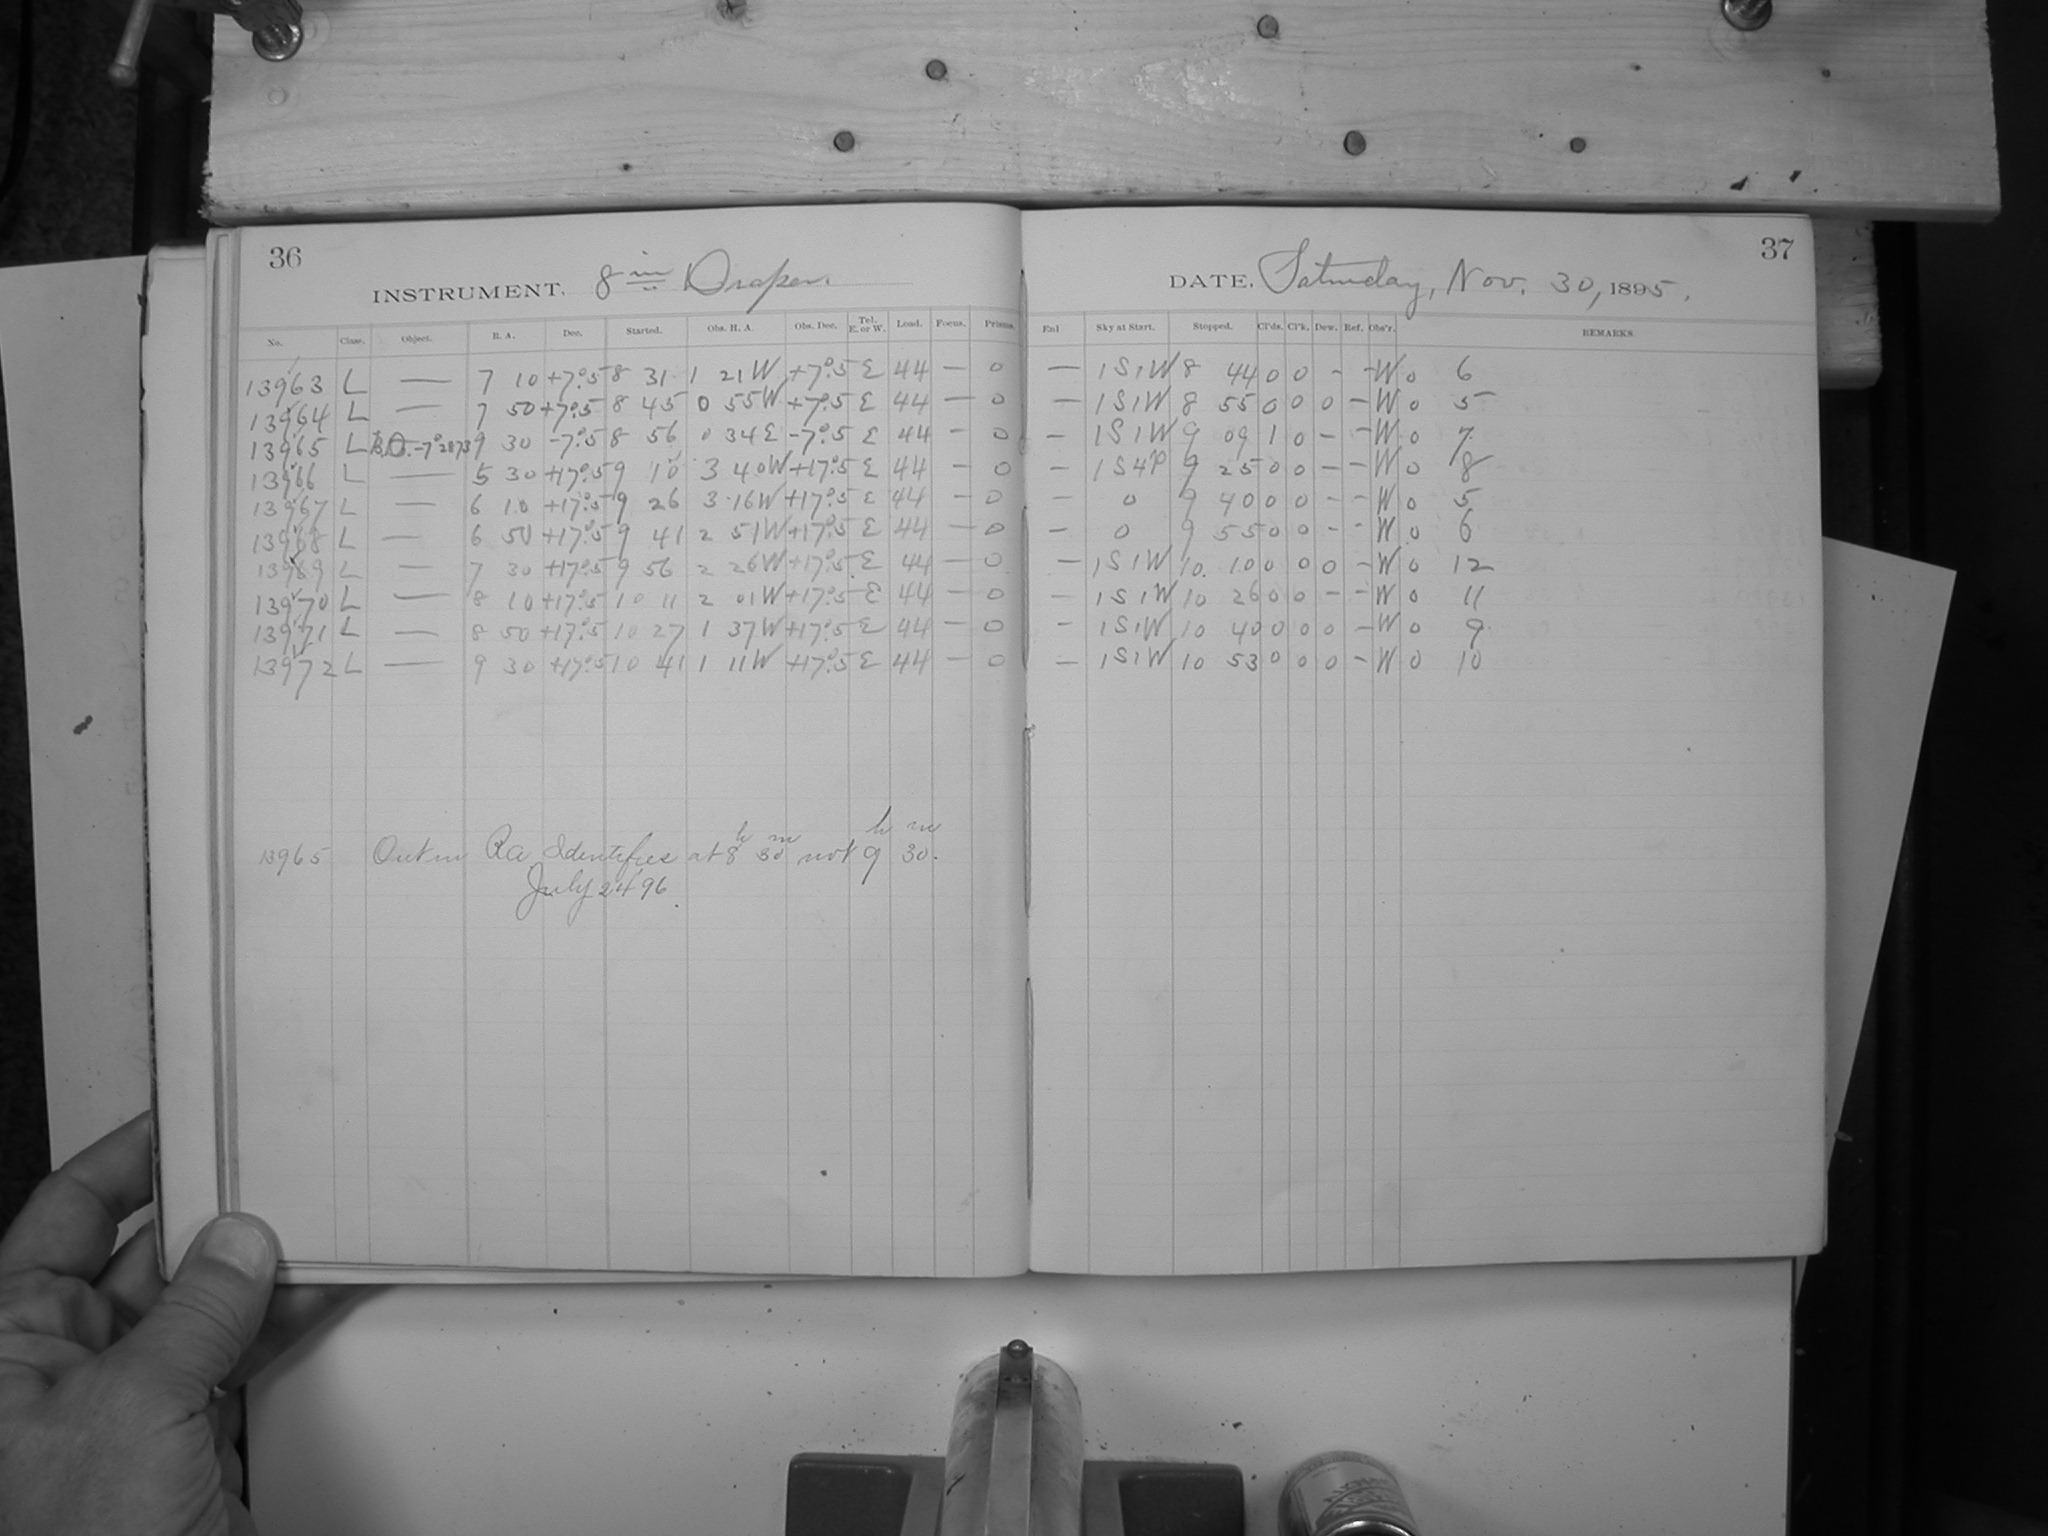 36
37
INSTRUMENT. 8 in Draper.
DATE. Saturday, Nov. 30, 1895.
No. Class. Object. R. A. Dec. Started. Obs. H. A. Obs. Dec. Tel. E. or W. Load. Focus. Prisms. Enl Sky at Start. Stopped. Cl'ds. Cl'k. Dew. Ref. Obs'r. REMARKS.
13963 L — 7 10 +7°.5 8 31 1 21W +7°.5 E 44 — 0 — 1S1W 8 44 0 0 - - W 0 6
13964 L — 7 50 +7°.5 8 45 0 55W +7°.5 E 44 — 0 — 1S1W 8 55 0 0 0 - W 0 5
13965 L B.D.-7°2873 9 30 -7°.5 8 56 0 34E -7°.5 E 44 — 0 — 1S1W 9 09 1 0 - - W 0 7
13966 L — 5 30 +17°.5 9 10 3 40W +17°.5 E 44 — 0 — 1S4P 9 25 0 0 - - W 0 8
13967 L — 6 10 +17°.5 9 26 3 16W +17°.5 E 44 — 0 — 0 9 40 0 0 - - W 0 5
13968 L — 6 50 +17°.5 9 41 2 51W +17°.5 E 44 — 0 — 0 9 55 0 0 - - W 0 6
13969 L — 7 30 +17°.5 9 56 2 26W +17°.5 E 44 — 0 — 1S1W 10 10 0 0 0 - W 0 12
13970 L — 8 10 +17°.5 10 11 2 01W +17°.5 E 44 — 0 — 1S1W 10 26 0 0 - - W 0 11
13971 L — 8 50 +17°.5 10 27 1 37W +17°.5 E 44 — 0 — 1S1W 10 40 0 0 0 - W 0 9
13972 L — 9 30 +17°.5 10 41 1 11W +17°.5 E 44 — 0 — 1S1W 10 53 0 0 0 - W 0 10
13965 Out in Ra Identifies at 8h 30m not 9h 30m.
July 24 '96.